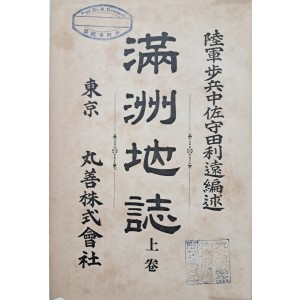 陸軍步兵中佐守田利遠編述
滿洲地誌 上卷
東京 丸善株式會社